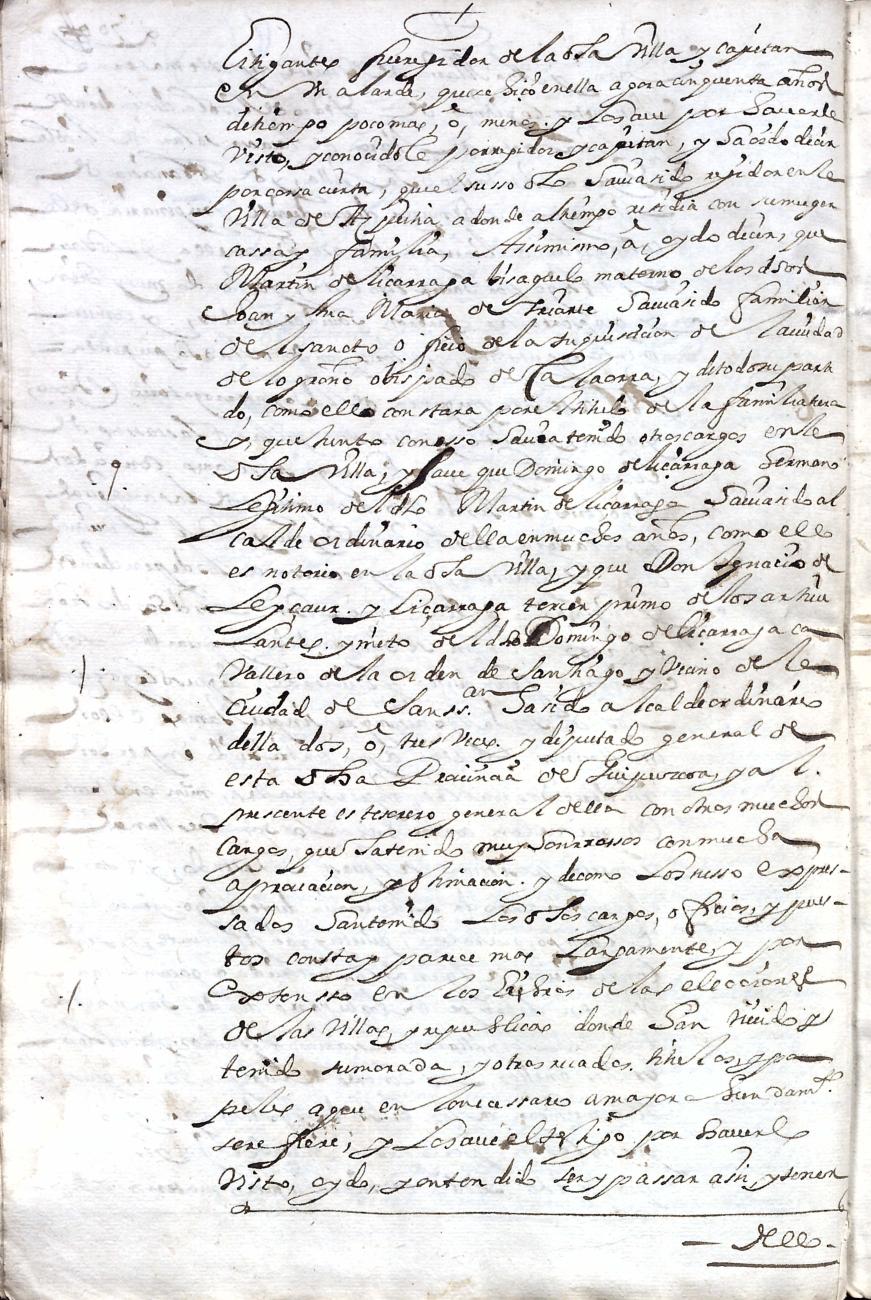 Litigantes fue regidor de la dha Villa y capitan
en Un alarde, que se hiço en ella agora cinquenta años
de tiempo poco mas, ô, menos. y lo save por haverle
Visto, y conocidole por regidor y capitan, y ha oydo decir
por cossa cierta, que el susso dho havia sido regidor en la
Villa de Azpeitia a donde al tiempo residia con su muger
cassa y familia, Assimismo, â, oydo decir, que
Martin de liçarraga bisaguelo materno de los dhos
Joan y Ana Maria de Iriarte havia sido familiar
del sancto officio de la Inquisicion de la ciudad
de logroño obispado de Calaorra, y de todo su parti
do, como ello constara por el titulo de la familiatura
y, que Junto con esso havia tenido otros cargos en la
dha Villa, y save que Domingo de liçarraga hermano
Legitimo del dho Martin de liçarraga havia sido al
calde ordinario de ella en muchos años, como ello
es notorio en la dha Villa, y que Don Ignacio de
Leyçaur. y Liçarraga tercer primo de los articu
lantes. y nieto del dho Domingo de liçarraga ca
Vallero de la orden de Santiago y Vecino de la
Ciudad de San ss.an ha sido alcalde ordinario
della dos, ô, tres Veces. y diputado general de
esta dha Provincia de Guipuzcoa, y al.
pressente es tesorero general della con otros muchos
cargos, que ha tenido muy honrrossos con mucha
aprovacion, y estimacion. y de como los susso expres-
sados han tenido los dhos cargos, officios, y pues-
tos consta y parece mas largamente, y por
Extensso en los Libros de las elecciones
de las Villas, y republicas donde han Vivido y
tenido su morada, y otros recados. titulos, y pa
peles a que en lo necessario a mayor abundam.to
se refiere, y lo save el testigo por haverlo
Visto, oydo, y entendido ser y passar assi, y tener
— dello -